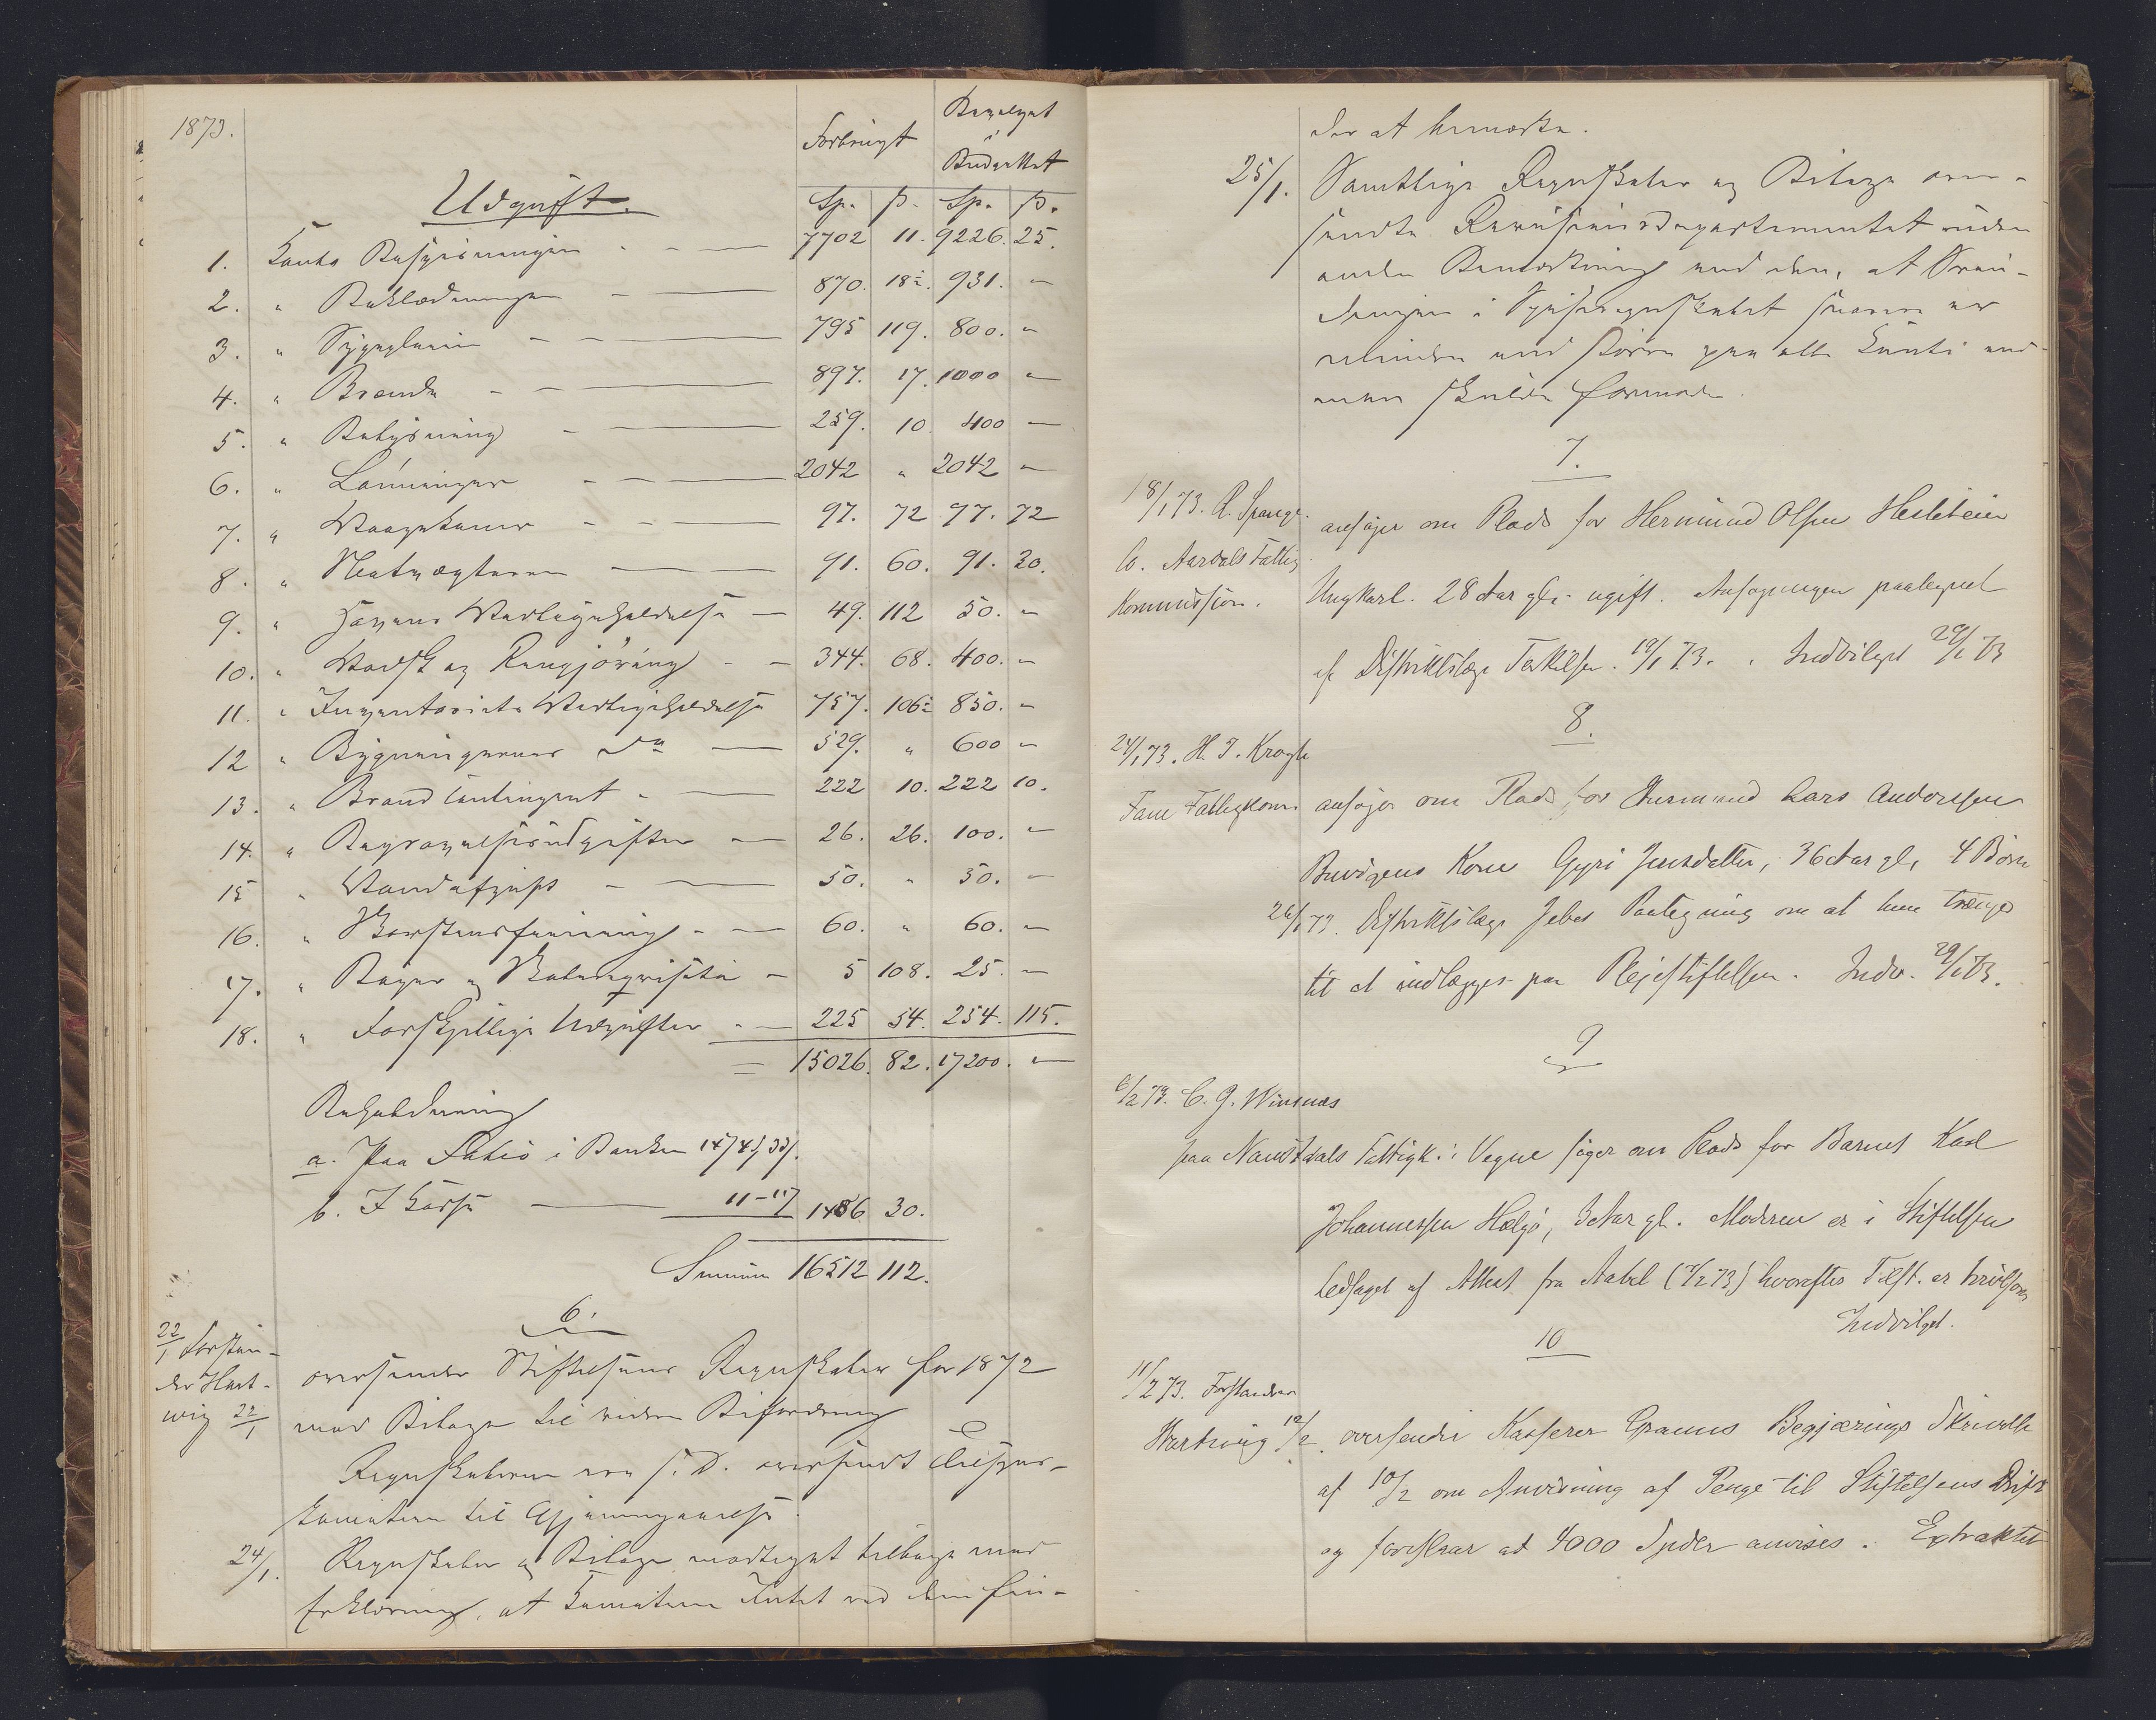 1873.
Forbrugt
Beregnet
i
Budgettet
Udgift.
Sp. ß. Sp. ß.
1. Konto Bespisningen 7702 11. 9226. 25.
2. " Beklædningen 870. 18½. 931. "
3. " Sygepleien 795 119. 800. "
4. " Brænde 897. 17. 1000 "
5. " Belysning 259. 10. 400 "
6. " Lønninger 2042 " 2042 "
7. " Vaagekoner 97. 72 97. 72
8. " Natvægteren 91. 60. 91. 30.
9. " Havens Vedligeholdelse 49. 112 50. "
10. " Vadsk og Rengjøring 344. 68. 400. "
11. " Inventariets Vedligeholdelse 757. 106½ 850. "
12 " Bygningernes do 529. " 600 "
13. " Brandkontingent 222 10. 222 10.
14. " Begravelsesudgifter 26. 26. 100. "
15 " Vandafgift 50. " 50. "
16. " Skorstensfeining 60. " 60. "
17. " Bøger og Skolerekvisita 5 108. 25. "
18. " Forskjellige Udgifter 225 54. 254. 115.
= 15026. 82. 17200. "
Beholdning
a. Paa Folio i Banken 1474 33/.
b. I Kasse 11-117 1486 30.
Summa 16512 112.
6.
22/1 Forstan-
der Hart-
wig 22/1
oversender Stiftelsens Regnskaber for 1872
med Bilage til videre Befordring
Regnskaberne ere s. D. oversendt Tilsyns-
komiteen til Gjennemgaaelse.
24/1. Regnskaber og Bilage modtaget tilbage med
Erklæring, at Komiteen Intet ved dem fin-
der at bemærke.
25/1. Samtlige Regnskaber og Bilage over-
sendte Revisionsdepartementet uden
anden Bemærkning end den, at
i Spiseregnskabet snarere er
mindre end større paa alle Konti end
man skulde formode.
7.
18/1 73. R. Spange
b. Aardals Fattig
Kommission.
ansøger om Plads for Hermund Olsen Hesteteien
Ungkarl. 28 Aar gl. ugift. Ansøgningen paategnet
af Distriktslæge Terkelsen 19/1 73. Indvilget 29/1 73
8.
24/1 73. H. J. Krogh
Fane Fattigkom.
ansøger om Plads for Huusmand Lars Anderssen
Buvigens Kone Gyri Jensdatter, 36 Aar gl, 4 Børn
26/1 73. Distriktslæge Jebes Paategning om at hun trænger
til at indlægges paa Plejestiftelsen. Indv. 29/1 73.
9
6/2 73. C. G. Winsnæs
paa Naustdals Fattigk.s Vegne søger om Plads for Barnet Karl
Johannessen Helgø, 3 Aar gl. Moderen er i Stiftelsen
ledsaget af Attest fra Nabel (7/2 73) hvorefter Tilst. er tvivlsom
Indvilget.
10
11/2 73. Forstander
Hartwig 12/2. oversender Kasserer Grams Begjærings Skrivelse
af 10/2 om Anvisning af Penge til Stiftelsens Drift
og foreslaar at 4000 Spdlr anvises. Extraktet